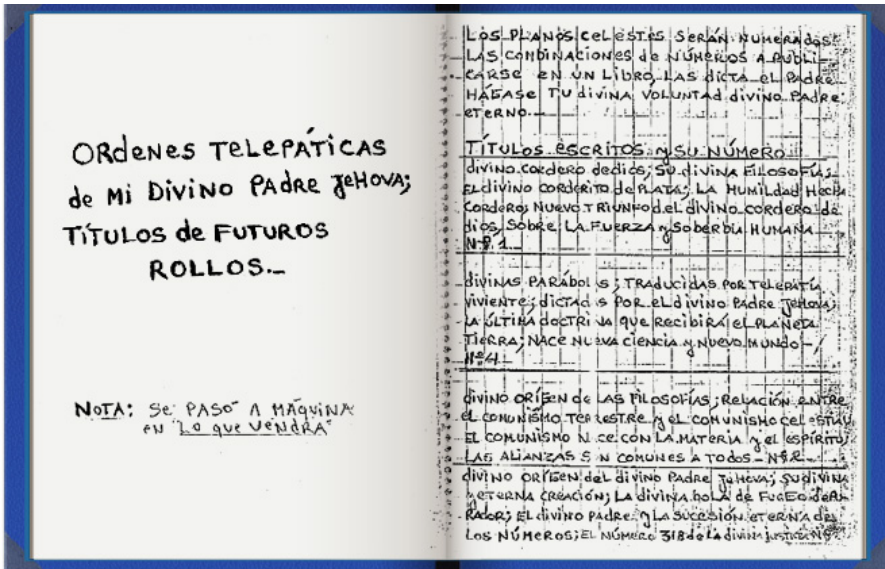 ORdeNes TeLePÁTicas
de Mi Divino PAdRe JeHovA;
TíTULos de FUTUROS
ROLLOS._
NOTA: Se PASO A MÁQUiNA
eN "Lo que VeNdRA"
LOS PLANOS CELESTES SERÁN NUMERAdOS
LAS COMBINACIONES de NÚMEROS A PUBLI
CARSE EN UN LIBRO, LAS dicTA eL PAdRe
HÁGASE TU diviNA VOLUNTAd diviNo PAdRe
eTeRNo._
TÍTULOS ESCRITOS y SU NÚMERO
diviNo CORdeRo de diós, SU diviNA FiLoSoFíA;
EL diviNo CORdeRiTo de PLATA; LA HUMiLdAd HecHA
CORdeRo; NUevo TRiUNFo deL diviNo CORdeRo de
dioS, SobRe LA FUeRZA y SobeRbiA HUMANA
Nº 1_
diviNAS PARÁboL S; TRAdUcidAS POR TeLePATíA
viviENTe; dicTAd S POR eL diviNo PAdRe JeHovA;
LA ÚLTiMA docTRi A QUe RecibiRÁ eL PLANeTA
TieRRA; NACe NUevA cieNciA y NUevo MUNdo_
Nº 4
diviNo ORíGeN de LAS FiLoSoFíAS; ReLACióN eNTRe
eL coMUNiSMo TeRReSTRe y eL coMUNiSMo ceLeSTiAL
EL coMUNiSMo N ce coN LA MATeRiA y eL eSPíRiTU;
LAS ALiANZAS S N coMUNeS A TodoS_ Nº 2_
diviNo ORíGeN deL diviNo PAdRe JeHovA; SU diviNA
y eTeRNA cReAcióN; LA diviNA boLA de FUeGo
EL diviNo PAdRe y LA SUceSióN eTeRNA de
LOS NÚMeRoS; EL NÚMeRo 318 de LA diviNA jUSTiciA Nº